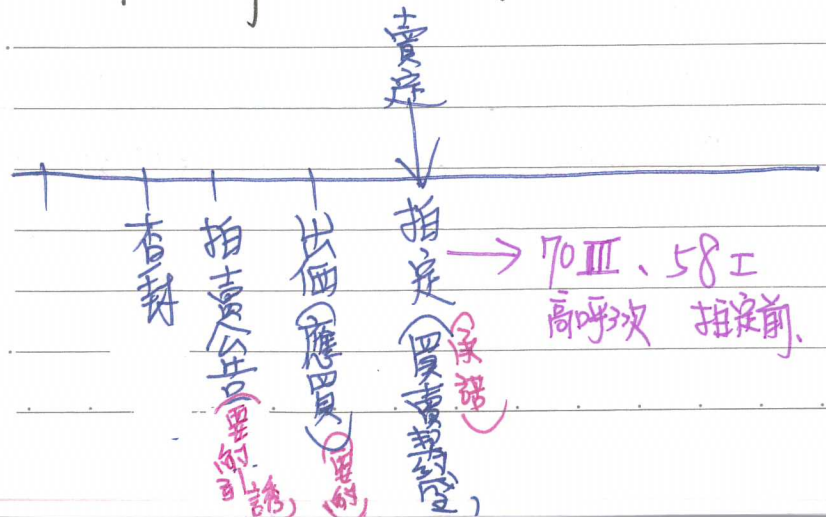 賣定
查封
拍賣公告(要約引誘)
出価(應買)(要約)
拍定(買賣契約)
(承諾)
→ 70 III、58 I
高呼3次 拍定前、